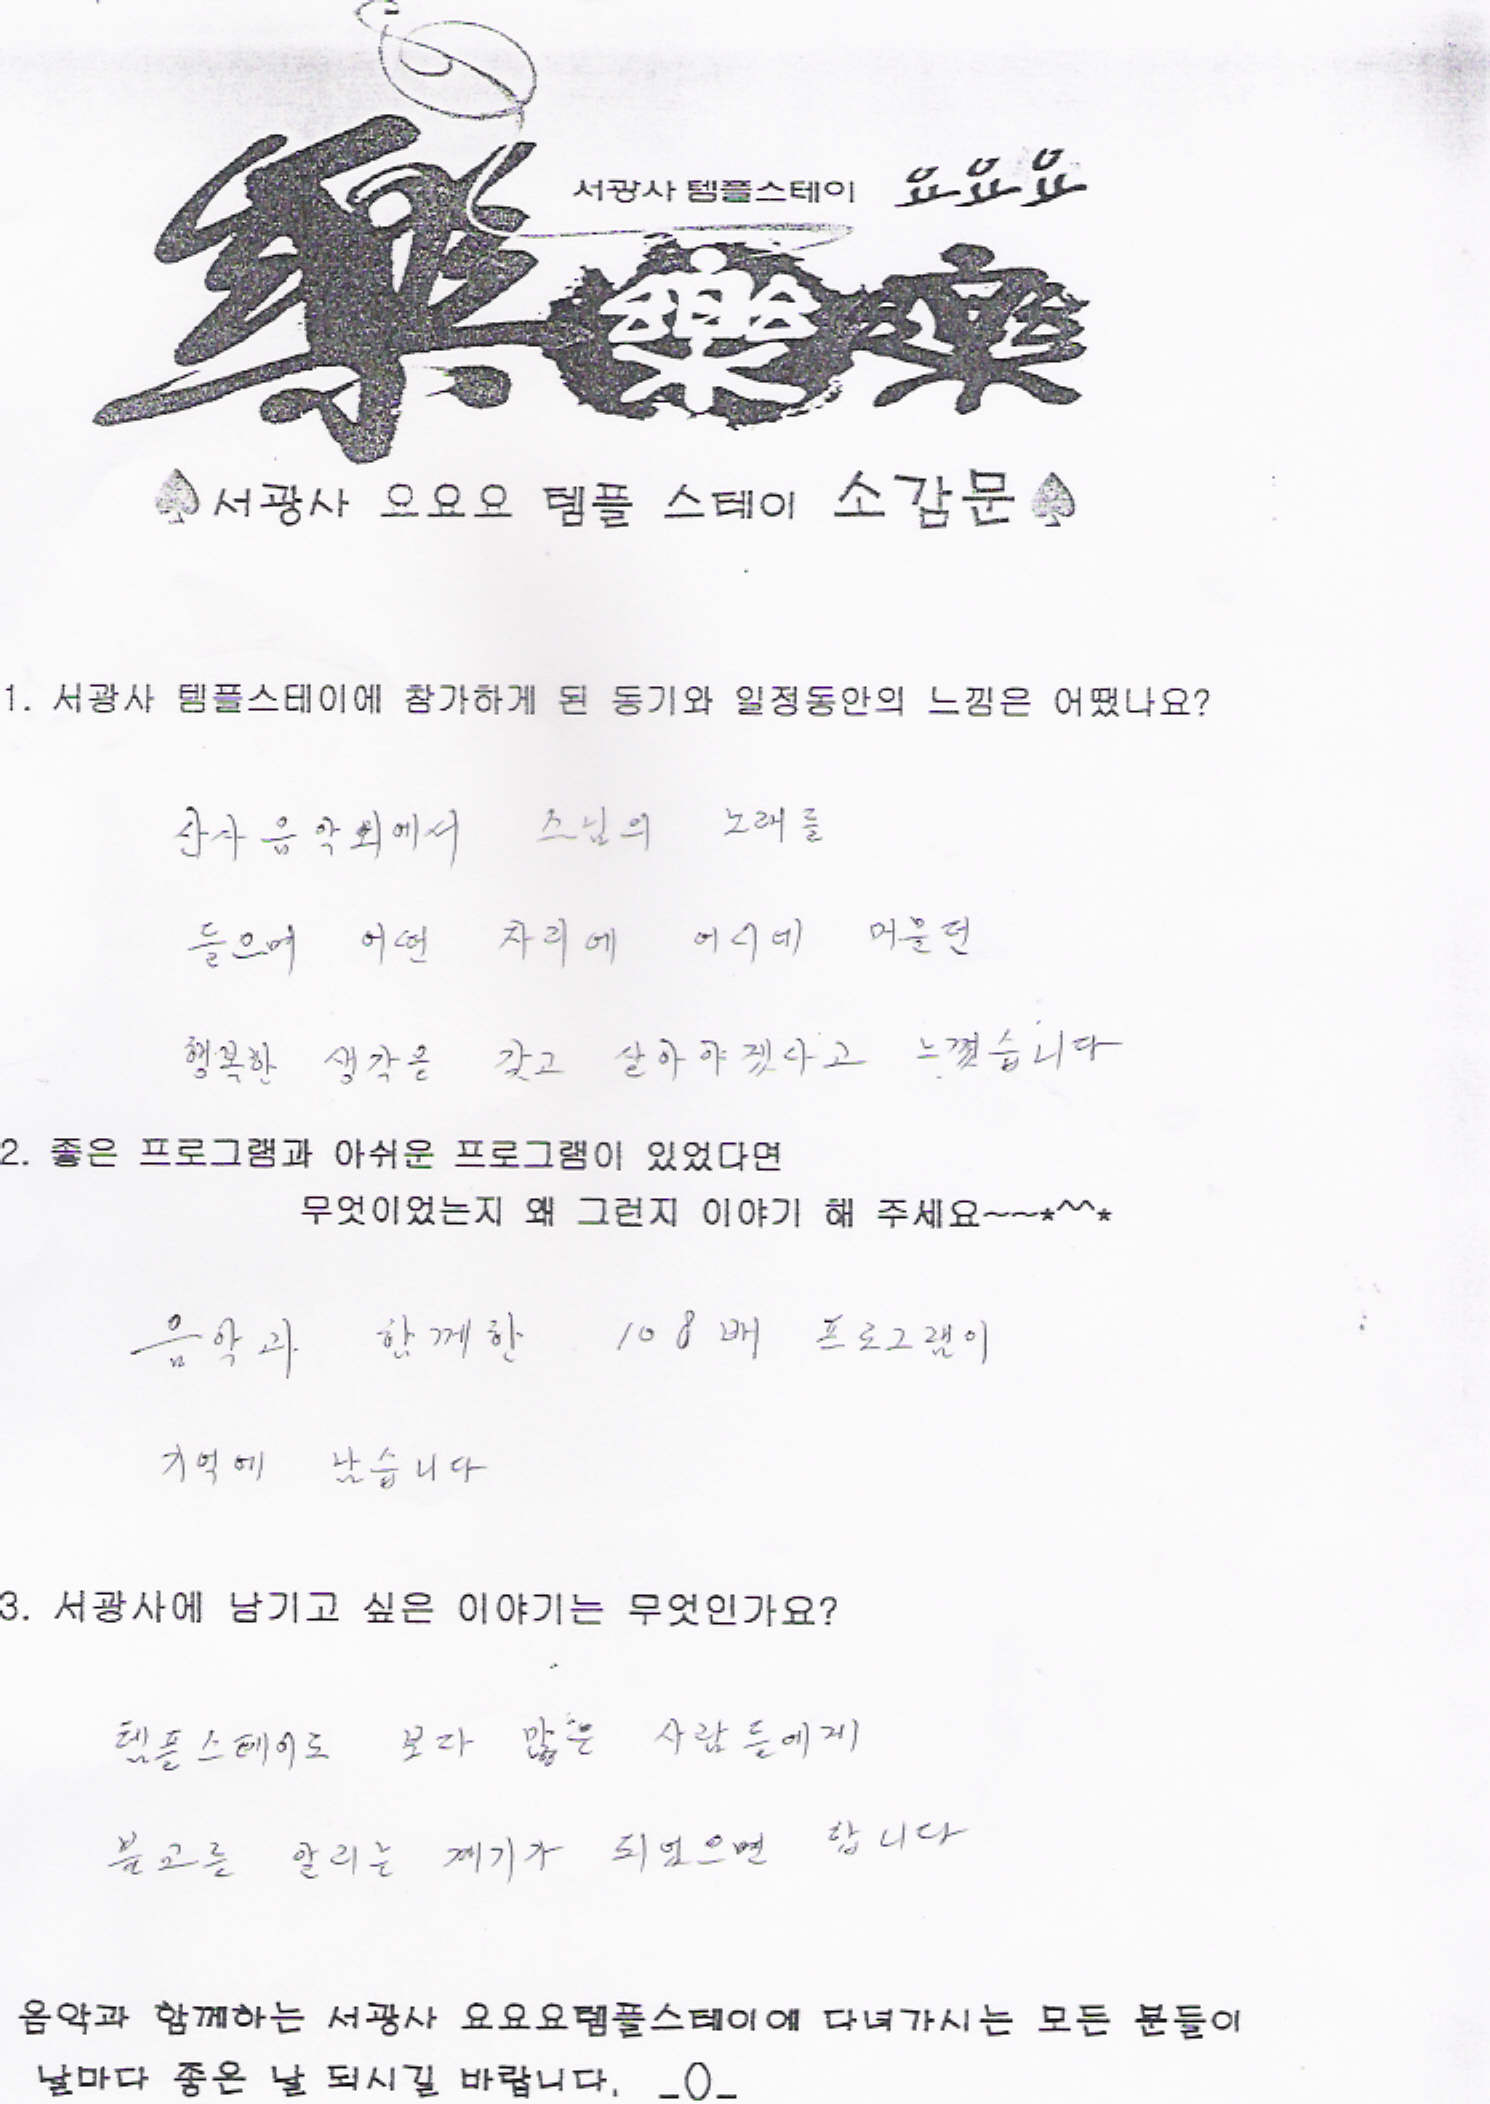 서광사 템플스테이 요요요
樂樂樂
♠서광사 요요요 템플 스테이 소감문♠
1. 서광사 템플스테이에 참가하게 된 동기와 일정동안의 느낌은 어땠나요?
산사음악회에서 스님의 노래를
들으며 어떤 자리에 어디에 머물던
행복한 생각을 갖고 살아야겠다고 느꼈습니다
2. 좋은 프로그램과 아쉬운 프로그램이 있었다면
무엇이었는지 왜 그런지 이야기 해 주세요~~*^^*
음악과 함께한 108배 프로그램이
기억에 남습니다
3. 서광사에 남기고 싶은 이야기는 무엇인가요?
템플스테이도 보다 많은 사람들에게
불교를 알리는 계기가 되었으면 합니다
음악과 함께하는 서광사 요요요템플스테이에 다녀가시는 모든 분들이
날마다 좋은 날 되시길 바랍니다. _()_